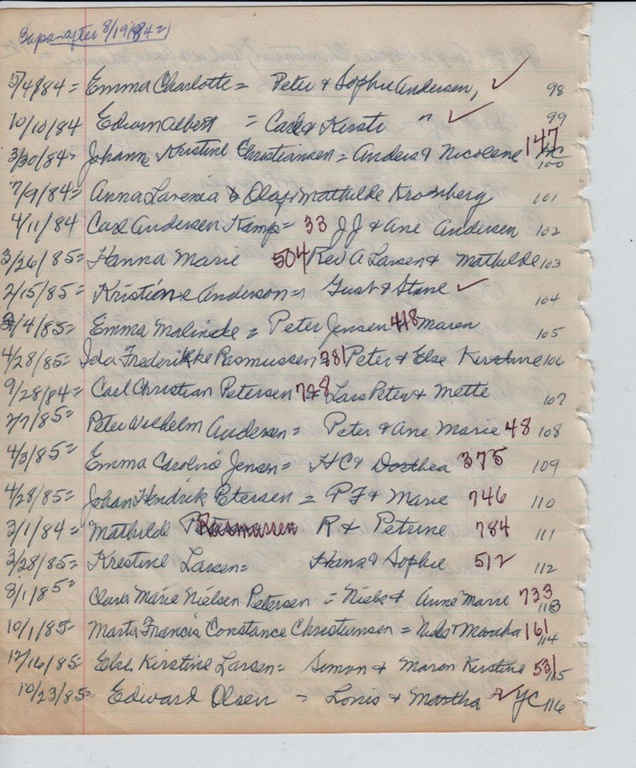 Baps after 8/19/84
5/4/84 = Emma Charlotte = Peter & Sophie Andersen, ✓ 98
10/10/84 Edwin Albert = Carl & Kirsti " ✓ 99
3/30/84 = Johanne Kristine Christiansen = Anders & Nicolene 147 100
7/9/84 = Anna Lavenia & Olaf Mathilde Kronberg 101
4/11/84 Carl Andersen Kamp = 33 JJ & Ane Andersen 102
3/26/85 = Hanna Marie 504 Rev A Larsen & Mathilde 103
2/15/85 = Kristine Anderson = Gust & Stane ✓ 104
/4/85 = Emma Malinde = Peter Jensen 418 Maren 105
4/28/85 = Ida Frederikke Rasmussen 781 Peter & Else Kirstine 106
9/28/84 = Carl Christian Petersen 728 Lars Peter & Mette 107
7/7/85 = Peter Wilhelm Andersen = Peter & Ane Marie 48 108
4/3/85 = Emma Caroline Jensen = HC & Dorthea 375 109
4/28/85 = Johan Hendrik Petersen = PF & Marie 746 110
3/1/84 = Mathilde Rasmussen R & Petrine 784 111
3/28/85 = Krestine Larsen = Hans & Sophie 512 112
8/1/85 = Clara Marie Nielsen Petersen = Niels & Anne Marie 733 113
10/1/85 = Marta Francis Constance Christensen = Nels & Martha 161 114
12/16/85 = Else Kirstine Larsen = Simon & Maren Kirstine 531 115
10/23/85 = Edward Olsen = Louis & Martha ✓ YC 116